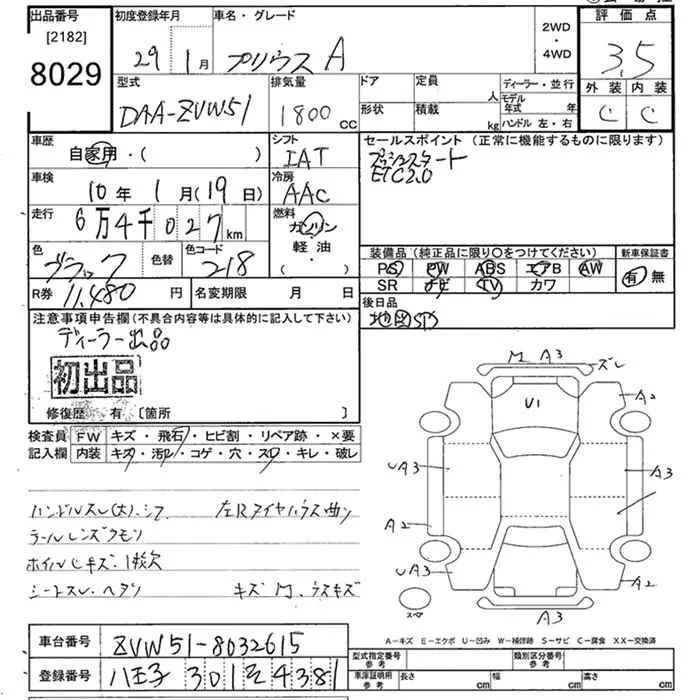 出品番号
[2182]
8029
初度登録年月
29 1月
車名・グレード
プリウス A
2WD
・
4WD
評価点
3.5
外装 内装
C C
型式
DAA-ZVW51
排気量
1800 CC
ドア
形状
定員 人
積載 kg
ディーラー・並行
モデル年式 年
ハンドル 左・右
車歴
自家用・( )
シフト
IAT
車検
10年1月(19日)
冷房
AAC
走行
6万4千027km
燃料
ガソリン
軽油
・
( )
色
ブラック
色替
色コード
218
R券 11,480円
名変期限 月 日
セールスポイント(正常に機能するものに限ります)
プッシュスタート
ETC2.0
装備品(純正品に限り○をつけてください)
PS PW ABS エアB AW
SR ナビ TV カワ
新車保証書
有 無
後日品
地図SD
注意事項申告欄(不具合内容等は具体的に記入して下さい)
ディーラー出品
初出品
修復歴 有 [箇所 ]
検査員
記入欄
FW キズ・飛石・ヒビ割・リペア跡・×要
内装 キズ・汚レ・コゲ・穴・スレ・キレ・破レ
ハンドルスレ(大)・シワ 左Rタイヤハウス曲リ
テールレンズクモリ
ホイルCキズ・1枚欠
シートスレ・ヘタリ キズ M、ラスキズ
M A3 ズレ
U1
A2
UA3
A3
A2
UA3
A2
A3
スペア
A-キズ E-エクボ U-凹み W-補修跡 S-サビ C-腐食 XX-交換済
車台番号 ZVW51-8032615
登録番号 八王子 301 そ 4381
型式指定番号
参考
類別区分番号
参考
車庫証明用
参考
長さ cm 幅 cm 高さ cm